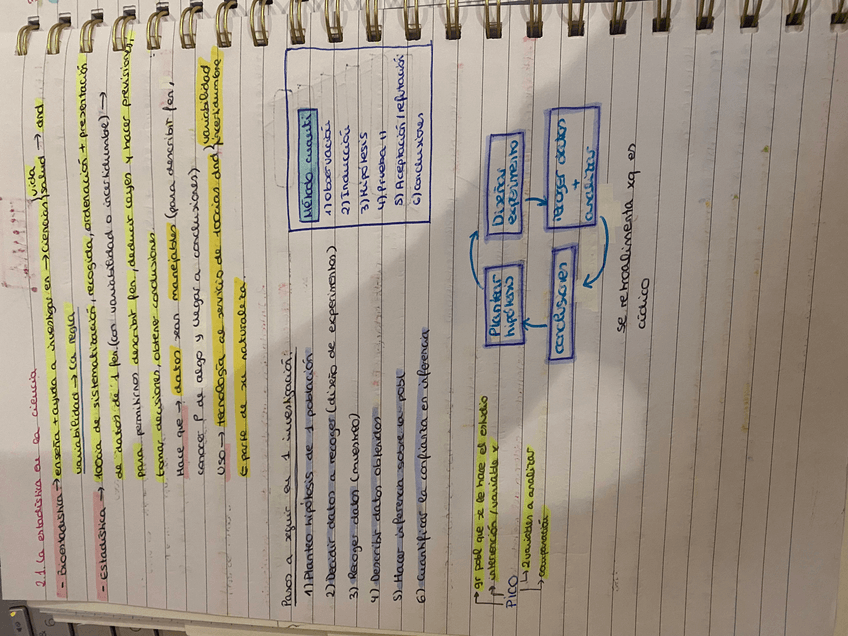 2.1. La estadística en la ciencia
- Bioestadística → enseña + ayuda a investigar en → ciencias vida/salud → dnd
variabilidad → la regla
- Estadística → 100cia de sistematización, recogida, ordenación + presentación
de datos de 1 fen. (con variabilidad o incertidumbre) →
para permitirnos describir fen, deducir leyes y hacer previsiones,
tomar decisiones, obtener conclusiones.
Hace que → datos sean manejables (para describir fen,
conocer P de algo y llegar a conclusiones)
Uso → tecnología al servicio de 100cias dnd variabilidad/incertidumbre
↳ parte de su naturaleza.
Pasos a seguir en 1 investigación:
1) Planteo hipótesis de 1 población
2) Decidir datos a recoger (diseño de experimentos)
3) Recoger datos (muestreo)
4) Describir datos obtenidos
5) Hacer inferencia sobre la pobl
6) Cuantificar la confianza en inferencia
Método cuanti
1) Observación
2) Inducción
3) Hipótesis
4) Prueba "
5) Aceptación/refutación
6) Conclusiones
→ gr pobl que se le hace el estudio
→ intervención/variable x
PICO
↳ 2 variables a analizar
↳ comparación
Plantear
hipótesis
Diseñar
experimento
recoger datos
+
analizar
conclusiones
se retroalimenta xq es
cíclico